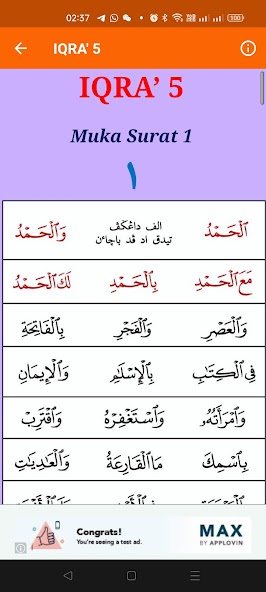 02:37 100
IQRA' 5
IQRA' 5
Muka Surat 1
١
اَلْحَمْدُ الف داڠݢڤ تيدق اد ڤد باچاءن وَٱلْحَمْدُ
مَعَ ٱلْحَمْدِ بِٱلْحَمْدِ لَكَ ٱلْحَمْدُ
وَٱلْعَصْرِ وَٱلْفَجْرِ بِٱلْفَاتِحَةِ
فِي ٱلْكِتَٰبِ بِٱلْإِسْلَٰمِ وَٱلْإِيمَانِ
وَٱمْرَأَتُهُۥ وَٱسْتَغْفِرْهُ وَٱقْتَرِبْ
بِٱسْمِكَ مَا ٱلْقَارِعَةُ وَٱلْعَٰدِيَٰتِ
Congrats!
You're seeing a test ad.
MAX
BY APPLOVIN